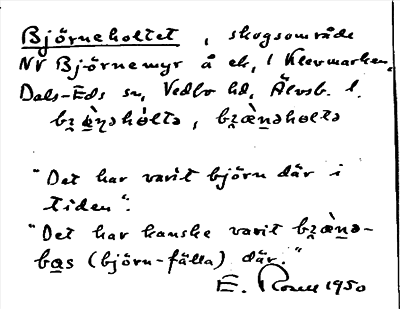 Björneholtet, skogsområde
NV Björnemyr å ek, i Klevmarken,
Dals-Eds sn, Vedbo hd, Älvsb. l.
bʒæ̀ṇəhòltə, bʒæ̀nəholtə
"Det har varit björn där i
tiden".
"Det har kanske varit bʒæ̀nə-
bɑs (björn-fälla) där."
E. 1950